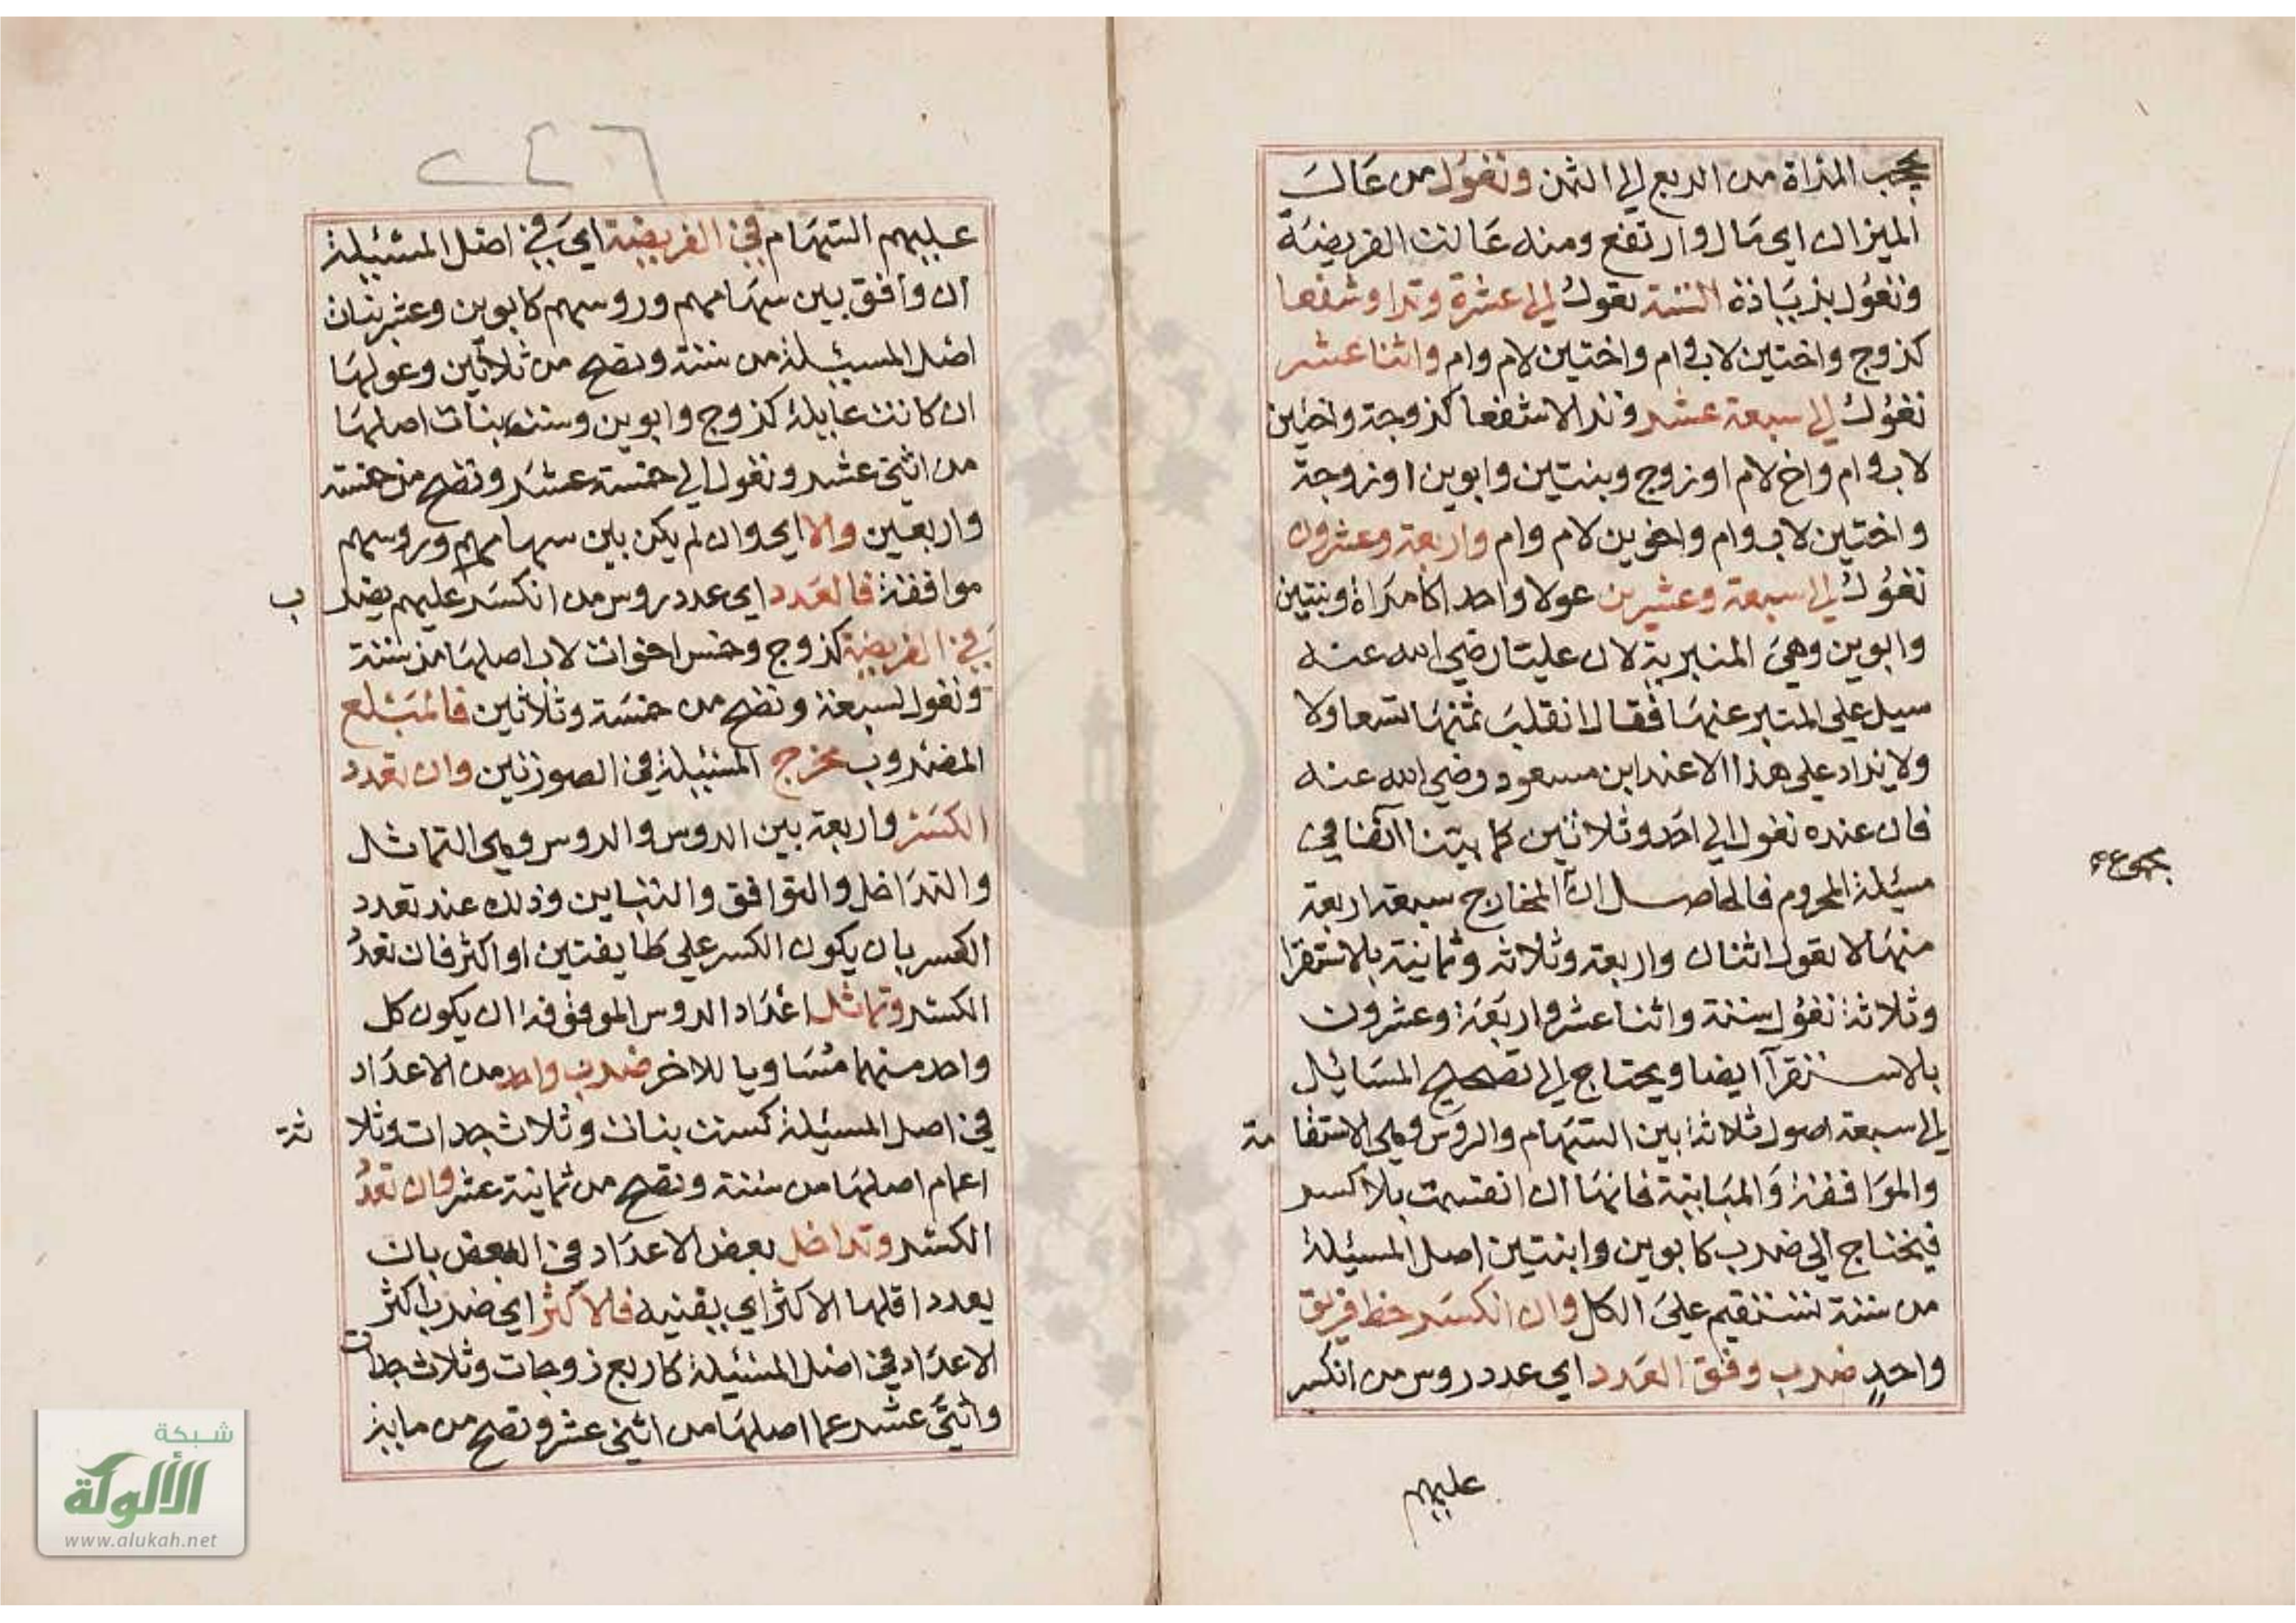 يحجب المراة من الربع الى الثمن وتعول من عال
الميزان اى مال وارتفع ومنه عالت الفريضة
وتعول بزيادة الستة تعول الى عشرة وترا وشفعا
كزوج واختين لاب وام واختين لام وام واثنا عشر
تعول الى سبعة عشر وترا لا شفعا كزوجة واختين
لاب وام واخ لام او زوج وبنتين وابوين او زوجة
واختين لاب وام واخوين لام وام واربعة وعشرون
تعول الى سبعة وعشرين عولا واحدا كامراة وبنتين
وابوين وهى المنبرية لان عليا رضى الله عنه
سيل على المنبر عنها فقال انقلب ثمنها تسعا ولا
ولا يزاد على هذا الا عند ابن مسعود رضي الله عنه
فان عنده تعول الى احد وثلاثين كما بينا آنفا فى
مسئلة المحروم فالحاصل ان المخارج سبعة اربعة
منها لا تعول اثنان واربعة وثلاثة وثمانية بالاستقرا
وثلاثة تعول ستة واثنا عشر واربعة وعشرون
بالاستقرآ ايضا ويحتاج الى تصحيح المسائيل
الى سبعة اصول ثلاثة بين السهام والروس وهى الاستقامة
والموافقة والمباينة فانها ان انقسمت بلا كسر
فيحتاج الى ضرب كابوين وابنتين اصل المسئلة
من ستة تستقيم على الكل وان انكسر حظ فريق
واحد ضرب وفق العدد اى عدد روس من انكسر
عليهم
٢٤٦
عليهم السهام فى الفريضة اى فى اصل المسئيلة
ان وافق بين سهامهم وروسهم كابوين وعشر بنات
اصل المسئيلة من ستة وتصح من ثلاثين وعولها
ان كانت عايلة كزوج وابوين وستة بنات اصلها
من اثنى عشر وتعول الى خمسة عشر وتصح من خمسة
واربعين والا اى وان لم يكن بين سهامهم وروسهم
موافقة فالعدد اى عدد روس من انكسر عليهم يضرب
فى الفريضة كزوج وخمس اخوات لاب اصلها من ستة
وتعول لسبعة وتصح من خمسة وثلاثين فالمبلغ
المضروب مخرج المسئيلة فى الصورتين وان تعدد
الكسر واربعة بين الروس والروس وهى التماثل
والتداخل والتوافق والتباين وذلك عند تعدد
الكسر بان يكون الكسر على طايفتين او اكثر فان تعدد
الكسر وتماثل اعداد الروس الموقوفة ان يكون كل
واحد منهما مساويا للاخر ضرب واحد من الاعداد
فى اصل المسئيلة كست بنات وثلاث جدات وثلاثة
اعمام اصلها من ستة وتصح من ثمانية عشر وان تعدد
الكسر وتداخل بعض الاعداد فى البعض بان
يعدد اقلها الاكثر اي يفنيه فالاكثر اى ضرب اكثر
الاعداد فى اصل المسئيلة كاربع زوجات وثلاث جدات
واثنى عشر عما اصلها من اثنى عشر وتصح من مايز
شبكة
الألوكة
www.alukah.net